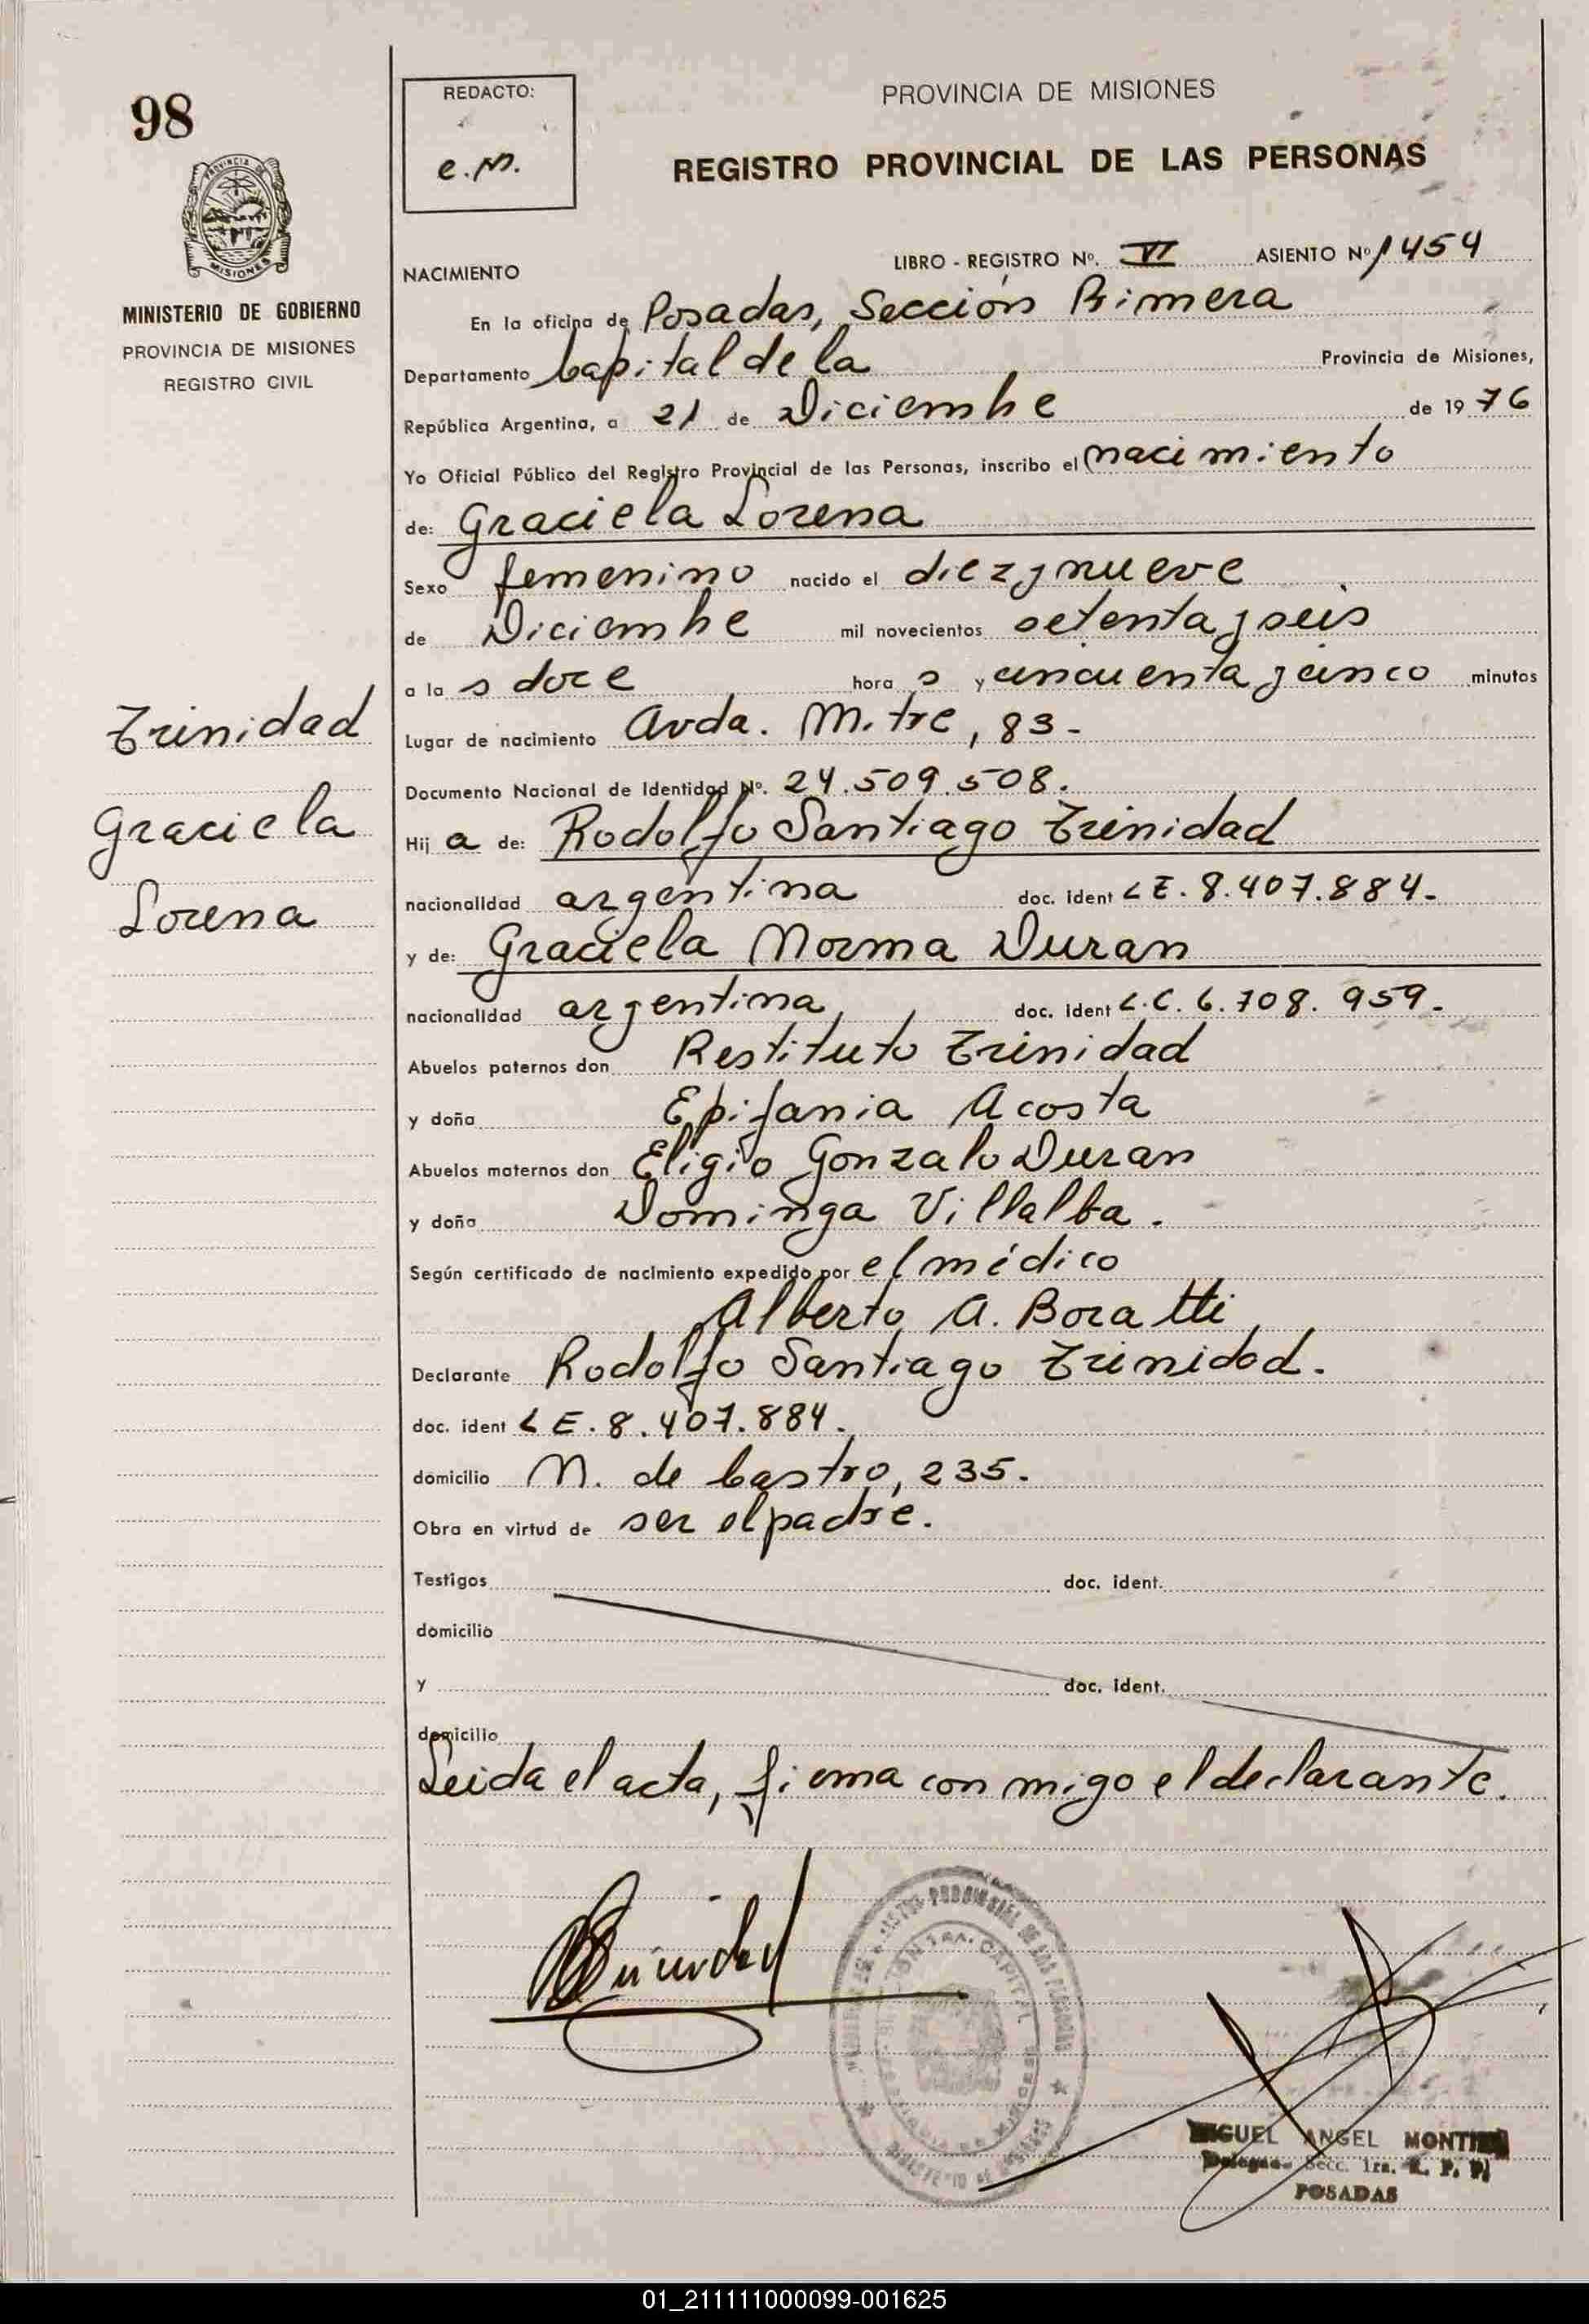 98
PROVINCIA DE
MISIONES
MINISTERIO DE GOBIERNO
PROVINCIA DE MISIONES
REGISTRO CIVIL
Trinidad
Graciela
Lorena
REDACTO:
e.m.
PROVINCIA DE MISIONES
REGISTRO PROVINCIAL DE LAS PERSONAS
NACIMIENTO LIBRO - REGISTRO Nº. VI ASIENTO Nº 1454
En la oficina de Posadas, Sección Primera
Departamento Capital de la Provincia de Misiones,
República Argentina, a 21 de Diciembre de 1976
Yo Oficial Público del Registro Provincial de las Personas, inscribo el nacimiento
de: Graciela Lorena
Sexo femenino nacido el diez y nueve
de Diciembre mil novecientos setenta y seis
a la s doce hora s y cincuenta y cinco minutos
Lugar de nacimiento Avda. Mitre, 83-
Documento Nacional de Identidad Nº. 24.509.508.
Hij a de: Rodolfo Santiago Trinidad
nacionalidad argentina doc. ident LE. 8.407.884-
y de: Graciela Norma Duran
nacionalidad argentina, doc. ident L.C. 6.708.959-
Abuelos paternos don Restituto Trinidad
y doña Epifania Acosta
Abuelos maternos don Eligio Gonzalo Duran
y doña Dominga Villalba.
Según certificado de nacimiento expedido por el médico
Alberto A. Boratti
Declarante Rodolfo Santiago Trinidad.
doc. ident LE. 8.407.884.
domicilio M. de Castro, 235.
Obra en virtud de ser el padre.
Testigos doc. ident.
domicilio
y doc. ident.
domicilio
Leida el acta, firma conmigo el declarante.
Trinidad
MIGUEL ANGEL
Secc. 1ra. R. P. P.
POSADAS
01_211111000099-001625